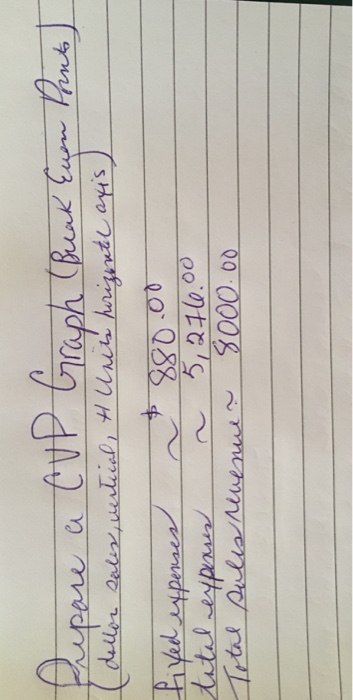 Prepare a CVP Graph (Break Even Points)
(dollar sales, vertical, # Units horizontal axis)
Fixed expenses ~ $ 880.00
total expenses ~ 5,276.00
Total sales revenue ~ 8000.00